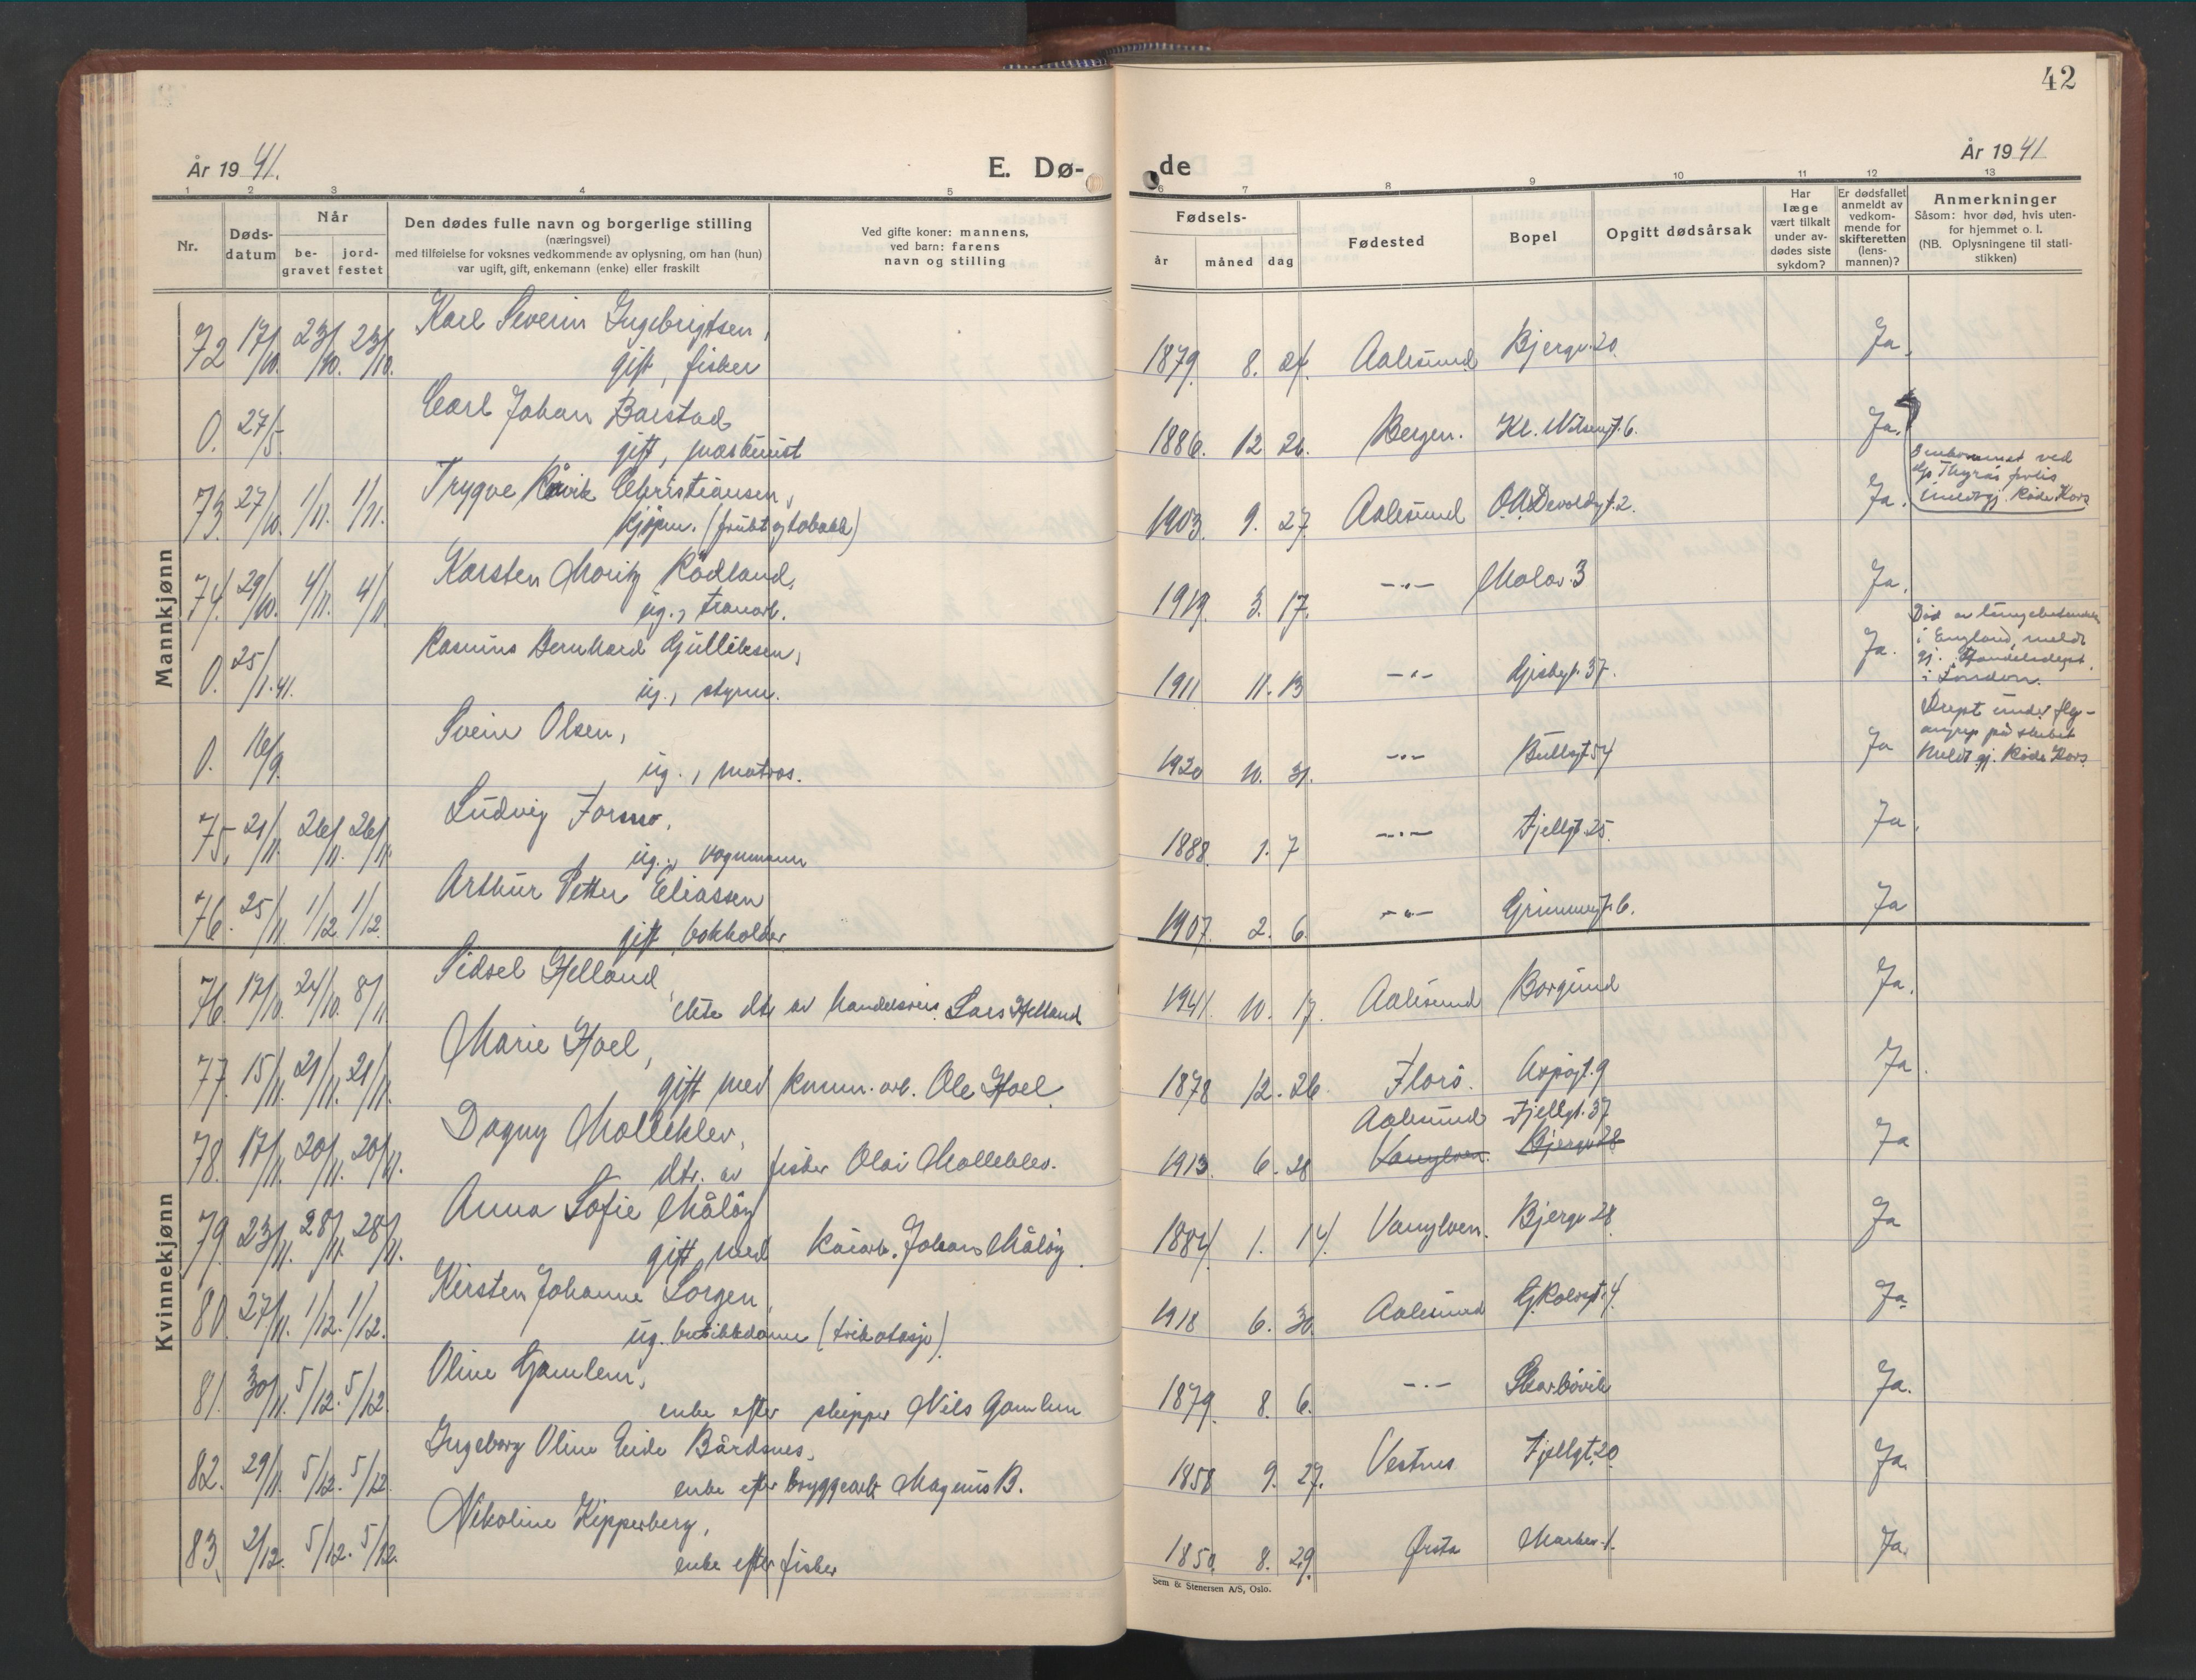 42
År 1941.
E. Dø-
de
År 1941
1 2 3 4 5 6 7 8 9 10 11 12 13
Nr.
Døds-
datum
Når
be-
gravet
jord-
festet
Den dødes fulle navn og borgerlige stilling
(næringsvei)
med tilføielse for voksnes vedkommende av oplysning, om han (hun)
var ugift, gift, enkemann (enke) eller fraskilt
Ved gifte koner: mannens,
ved barn: farens
navn og stilling
Fødsels-
år måned dag
Fødested
Bopel
Opgitt dødsårsak
Har
læge
vært tilkalt
under av-
dødes siste
sykdom?
Er dødsfallet
anmeldt av
vedkom-
mende for
skifteretten
(lens-
mannen)?
Anmerkninger
Såsom: hvor død, hvis uten-
for hjemmet o. l.
(NB. Oplysningene til stati-
stikken)
Mannkjønn
72 17/10. 23/10. 23/10. Karl Severin Ingebrigtsen,
gift, fisker
1879. 8. 24. Aalesund Bjergv. 20. Ja.
0. 27/5. Carl Johan Barstad
gift, maskinist
1886. 12 26. Bergen. Kl. Nilsensgt. 6. Ja.
73. 27/10. 1/11. 1/11. Trygve Christiansen,
kjøpm. (frukt og tobakk)
1903. 9. 27. Aalesund O.A. Devoldsgt. 2. Ja.
Omkommet ved
polis
Røde Kors
74. 29/10. 4/11. 4/11 Karsten Moritz Rødland,
ug., tranarb.
1919. 3. 17. -"- Molov. 3 Ja.
0. 25/1.41. Rasmus Bernhard Gulliksen,
ug., styrm.
1911 11. 13 -"- 37. Ja.
Død av
i England, meldt
gj.
i London.
0. 16/9. Svein Olsen,
ug., matros.
1920 10. 31. -"- Bullsgt 54 Ja
Drept under fly-
angrep på skibet
Meldt gj. Røde Kors.
75. 21/11. 26/11. 26/11. Ludvig Formo,
ug., vognmann
1888. 1. 7 -"- Fjellgt. 25. Ja.
76. 25/11. 1/12. 1/12. Arthur Petter Eliassen
gift, bokholder
1907. 2. 6. -"- Grimmergt. 6. Ja
Kvinnekjønn
76. 17/10. 24/10. 8/11 Sidsel Helland,
ekte dtr av handelsreis. Lars Helland
1941. 10. 17. Aalesund Borgund Ja.
77. 15/11. 21/11. 21/11. Marie Hoel,
gift med komm. arb. Ole Hoel.
1878 12. 26. Florø. Aspøgt. 9 Ja.
78. 17/11. 20/11. 20/11. Dagny Molleklev,
dtr. av fisker Olai Molleklev.
Aalesund Fjellgt. 37
1913. 6. 28 Vanylven. Bjergv 28 Ja
79. 23/11. 28/11. 28/11. Anna Sofie Måløy
gift med kaiarb. Johans Måløy.
1884. 1. 14. Vanylven. Bjergv 28. Ja
80. 27/11. 1/12. 1/12. Kirsten Johanne Sorgen,
ug. butikkdame (trikotasje).
1918 6. 30. Aalesund 4. Ja.
81. 30/11. 5/12. 5/12. Oline Gamlem,
enke efter skipper Nils Gamlem
1879. 8. 6. -"- Skarbøvik Ja.
82. 29/11. 5/12. 5/12. Ingeborg Oline Eide Bårdsnes,
enke efter bryggearb. Magnus B.
1858 9. 27. Vestnes Fjellgt. 20. Ja.
83. 2/12. 5/12. 5/12. Nikoline Kipperberg,
enke efter fisker
1850. 8. 29. Ørsta Ja.
Sem & Stenersen A/S, Oslo.